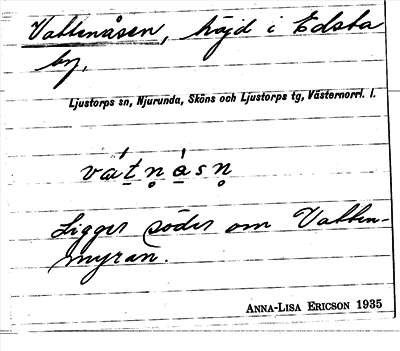 Vattenåsen, höjd i Edsta
by.
Ljustorps sn, Njurunda, Sköns och Ljustorps tg, Västernorrl. l.
vát̠n̥á̠sn̥
Ligger söder om Vatten-
myran.
ANNA-LISA ERICSON 1935